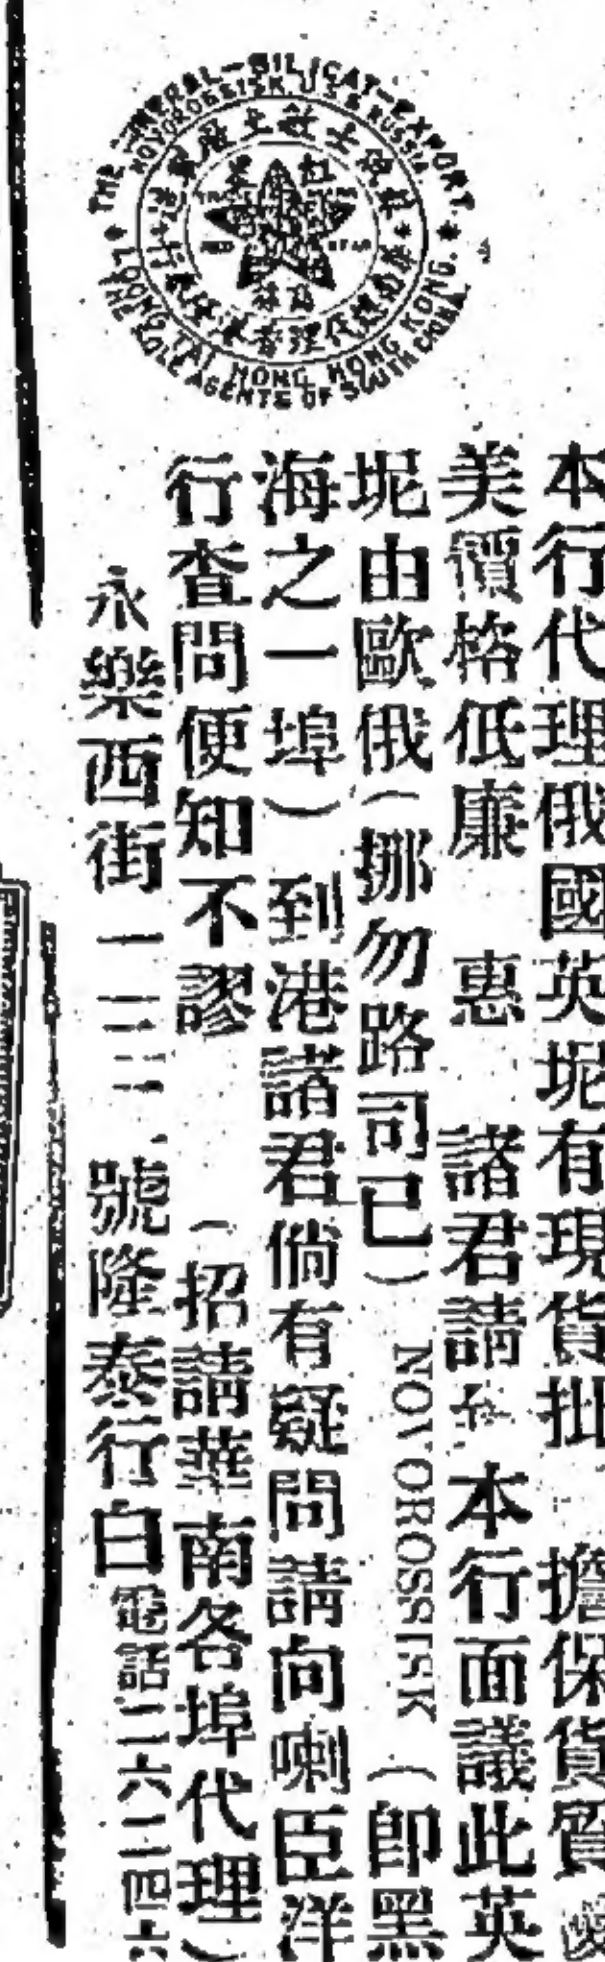 THE MINERAL-SILICAT-EXPORT
NOVOROSSISK U.S.S. RUSSIA
紅星
TRADE MARK
RED STAR
華南總代理香港隆泰行
LOONG TAI HONG HONG KONG.
THE SOLE AGENTS OF SOUTH CHINA
本行代理俄國英坭有現貨批 擔保貨質優
美價格低廉 惠 諸君請 本行面議此英
坭由歐俄(挪勿路司已) NOVOROSSISK (即黑
海之一埠) 到港諸君倘有疑問請向喇臣洋
行查問便知不謬 (招請華南各埠代理)
永樂西街一二三號隆泰行白 電話二六二四六